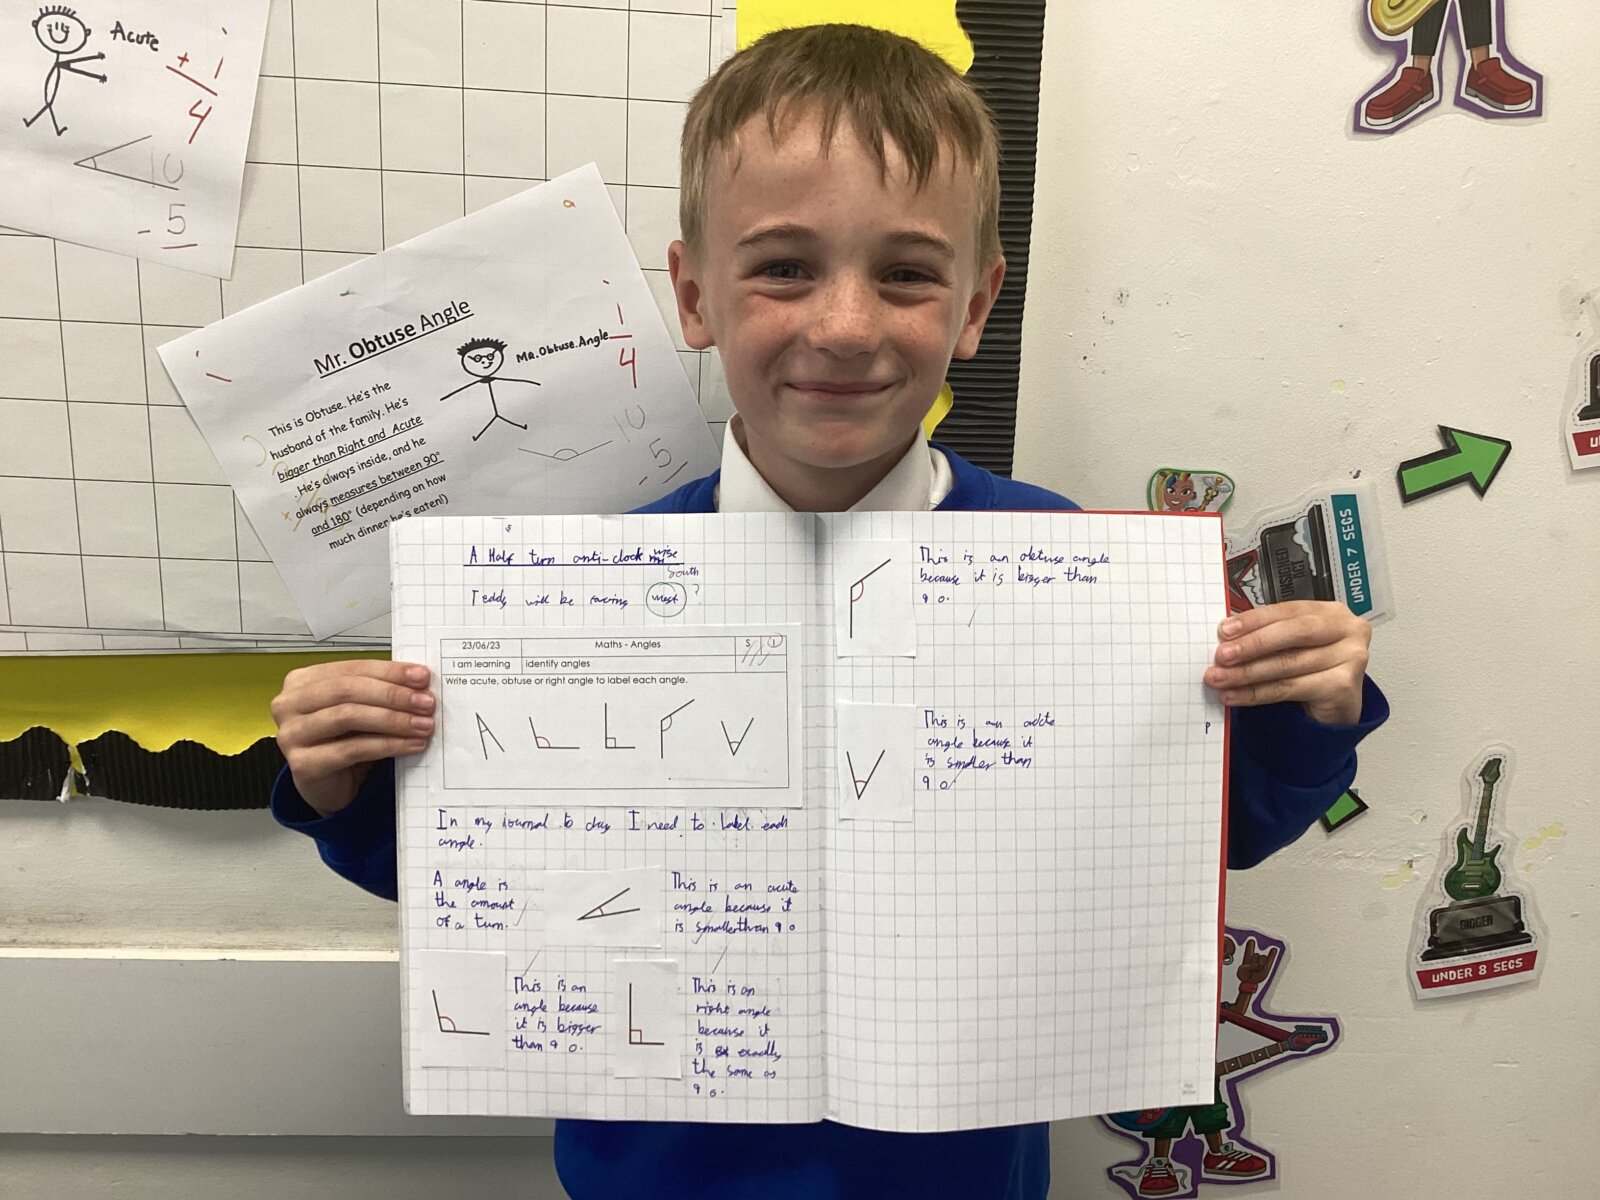 Acute
+ 1
4
10
- 5
Mr. Obtuse Angle
Mr. Obtuse. Angle
This is Obtuse. He's the
husband of the family. He's
bigger than Right and Acute
. He's always inside, and he
always measures between 90°
and 180° (depending on how
much dinner he's eaten!)
1
4
10
- 5
A Half turn anti-clock wise
South
Teddy will be facing west ?
23/06/23
Maths - Angles
S
1
I am learning
identify angles
Write acute, obtuse or right angle to label each angle.
In my journal to day I need to label each
angle.
A angle is
the amount
of a turn.
This is an acute
angle because it
is smaller than 90
This is an
angle because
it is bigger
than 90.
This is an
right angle
because it
is exactly
the same as
90.
This is an obtuse angle
because it is bigger than
90.
This is an
angle because it
is smaller than
90
P
UNSIGNED
ACT
UNDER 7 SECS
GIGGER
UNDER 8 SECS